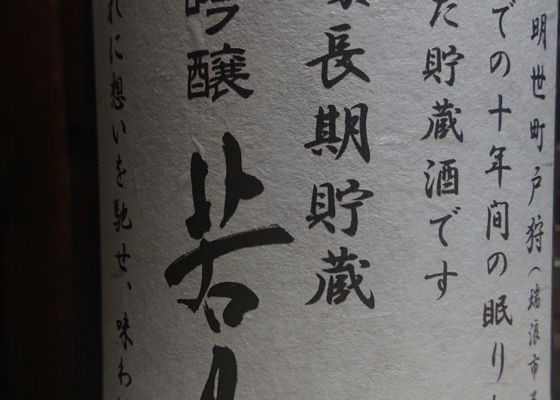 明世町戸狩(瑞浪市
での十年間の眠り
た貯蔵酒です
長期貯蔵
吟醸 若
れに想いを馳せ、味わ